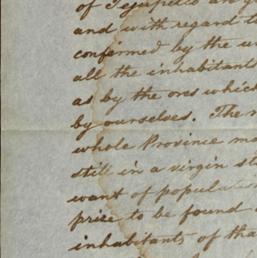 of Tejupilco an
and with regard t
confirmed by the
all the inhabitants
as by the ores which
by ourselves. The
whole Province
still in a virgin st
want of popula
price to be found
inhabitants of tha